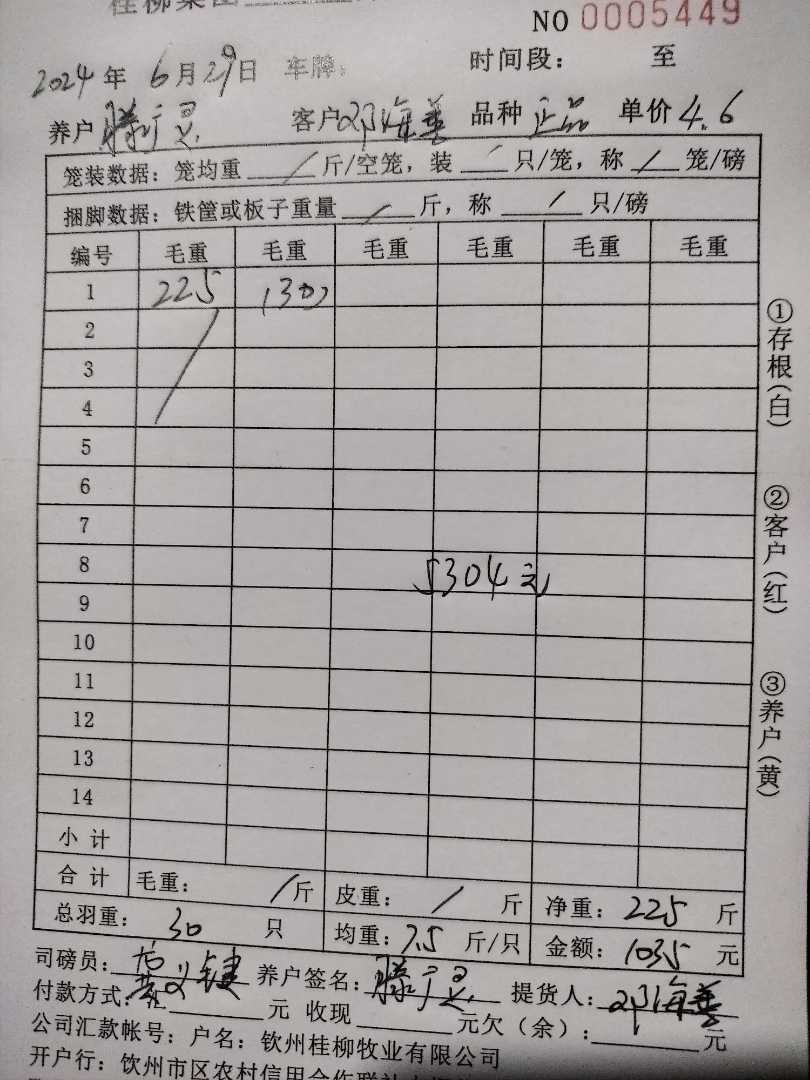 桂柳集团
NO 0005449
2024年 6月29日 车牌: 时间段: 至
养户 滕广灵 客户 邓海善 品种 正品 单价 4.6
笼装数据: 笼均重 / 斤/空笼, 装 / 只/笼, 称 / 笼/磅
捆脚数据: 铁筐或板子重量 / 斤, 称 / 只/磅
编号 毛重 毛重 毛重 毛重 毛重 毛重
1 225 (30)
2
3
4
5
6
7
8 5304元
9
10
11
12
13
14
小计
合计 毛重: / 斤 皮重: / 斤 净重: 225 斤
总羽重: 30 只 均重: 7.5 斤/只 金额: 1035 元
司磅员: 义键 养户签名: 滕广灵 提货人: 邓海善
付款方式: 元 收现 元欠(余): 元
公司汇款帐号: 户名: 钦州桂柳牧业有限公司
开户行: 钦州市区农村信用合作联社
①存根(白)
②客户(红)
③养户(黄)